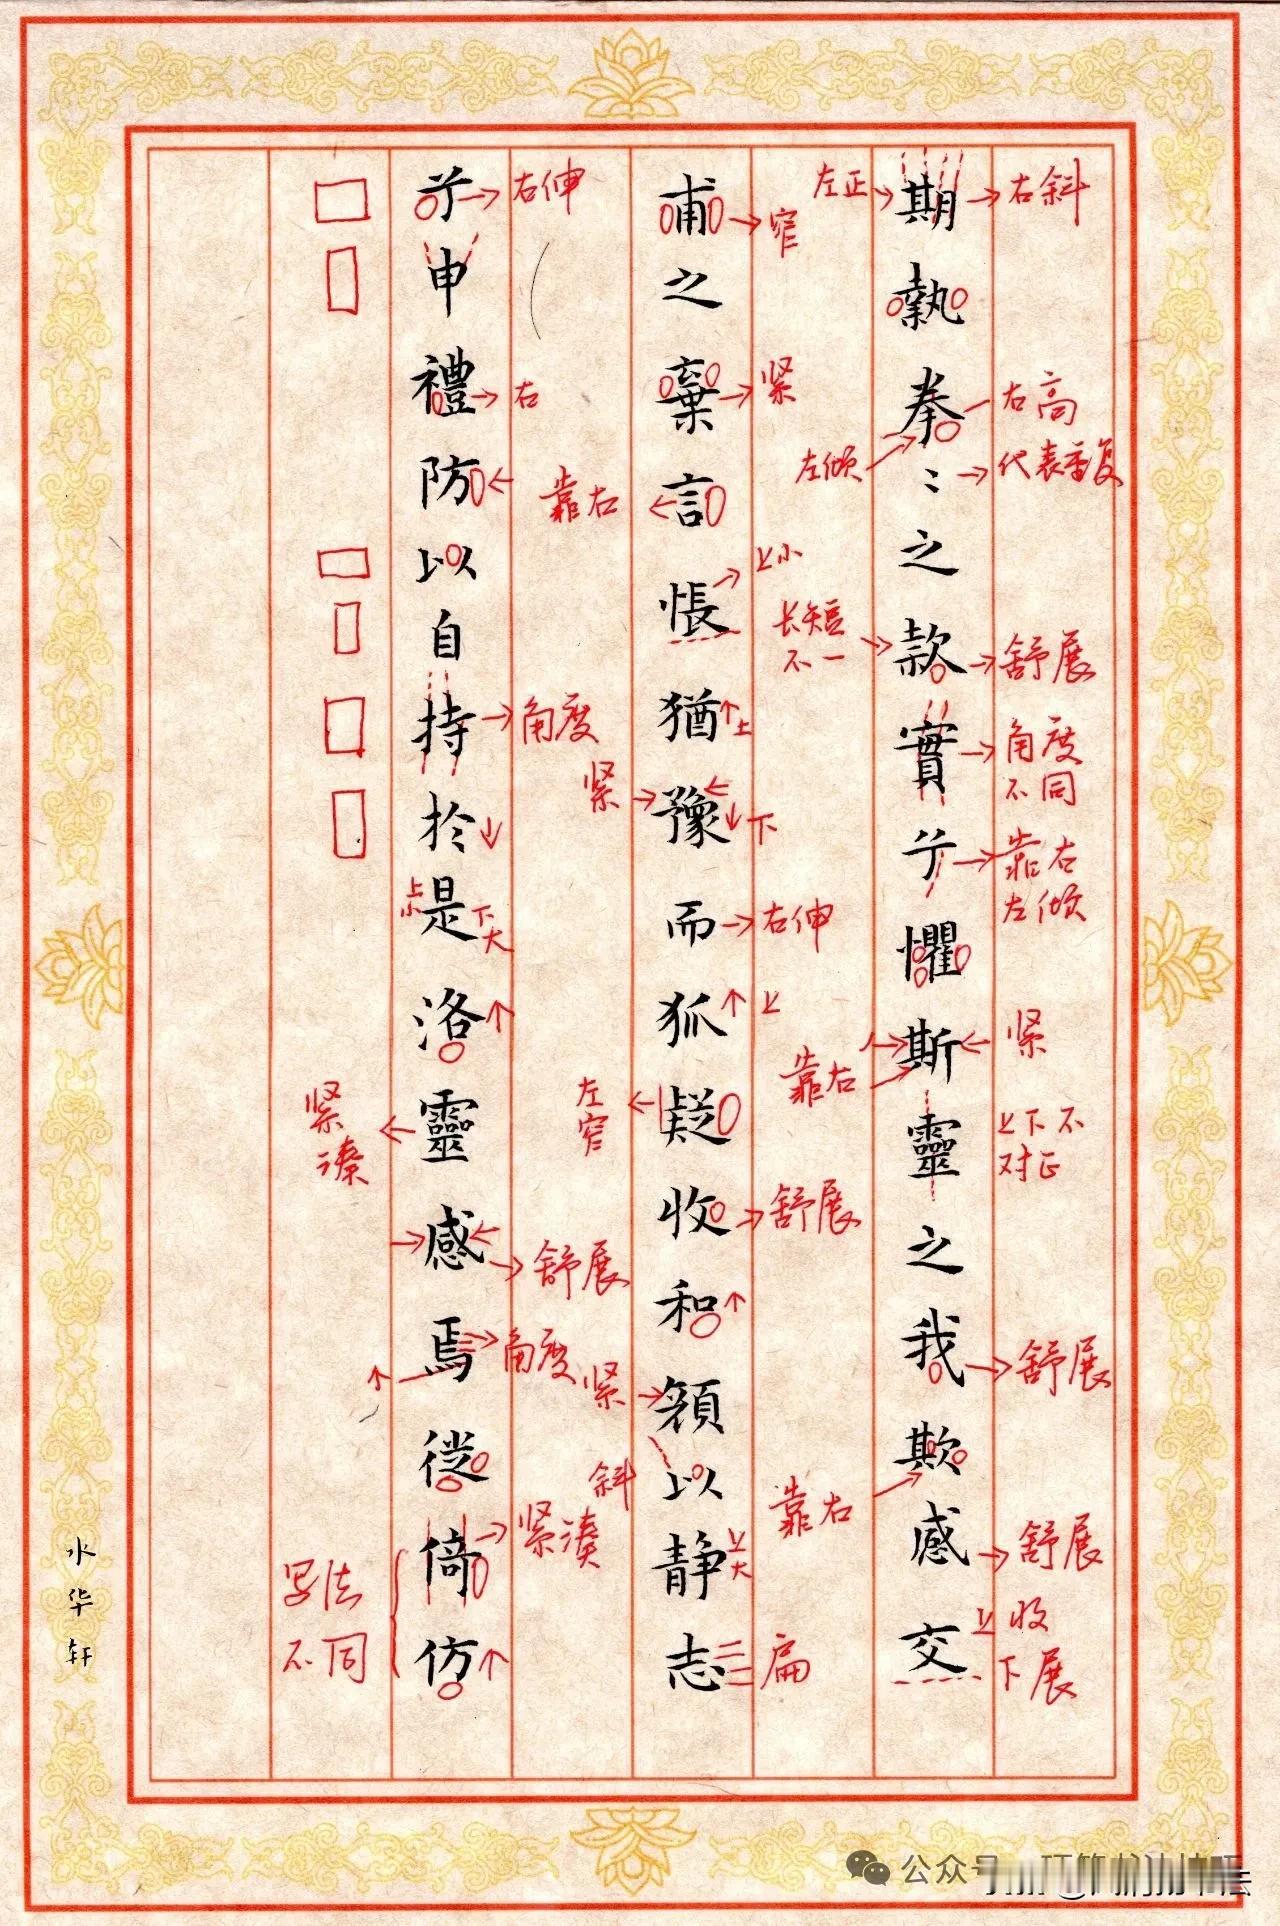 右斜
右高
代表重复
舒展
角度
不同
靠右
左倾
紧
上下不
对正
舒展
舒展
上收
下展
期執拳〻之款實兮懼斯靈之我欺感交
左正
窄
紧
左倾
上小
长短
不一
上
下
右伸
上
靠右
舒展
靠右
上大
扁
甫之棄言悵猶豫而狐疑收和顔以静志
右伸
右
靠右
角度
紧
左窄
舒展
角度
紧
斜
紧凑
兮申禮防以自持於是洛靈感焉從倚仿
上小
下大
紧凑
写法
不同
水华轩
公众号